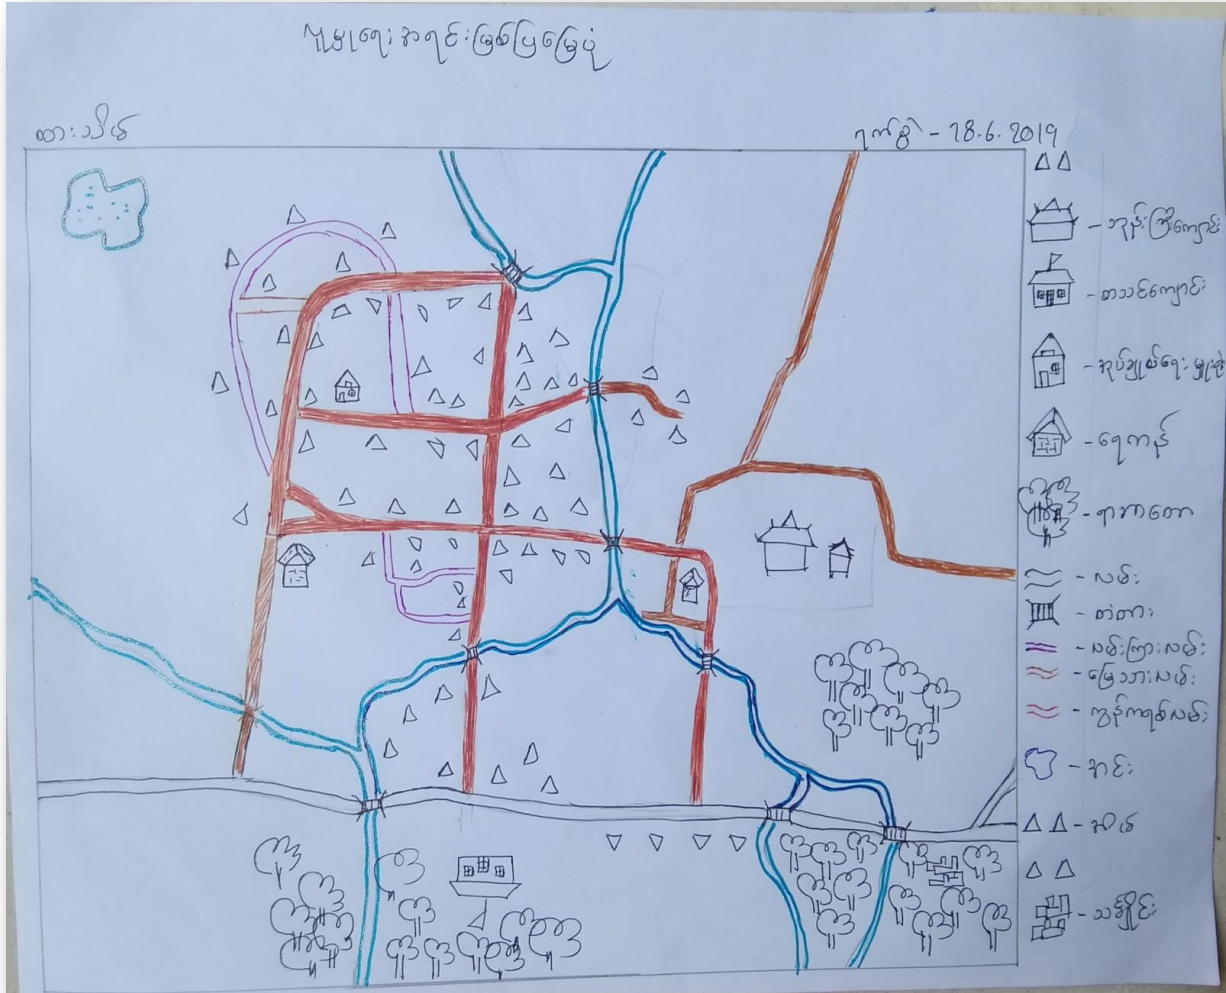 လူမှုရေး အရင်းမြစ်ပြမြေပုံ
ရက်စွဲ - 28.6.2019
- ဘုန်းကြီးကျောင်း
- စာသင်ကျောင်း
- အုပ်ချုပ်ရေးမှူးရုံး
- ရေကန်
- လမ်း
- တံတား
- လမ်းကြားလမ်း
- မြေသားလမ်း
- ကွန်ကရစ်လမ်း
- အင်း
- အိမ်
- သင်္ချိုင်း